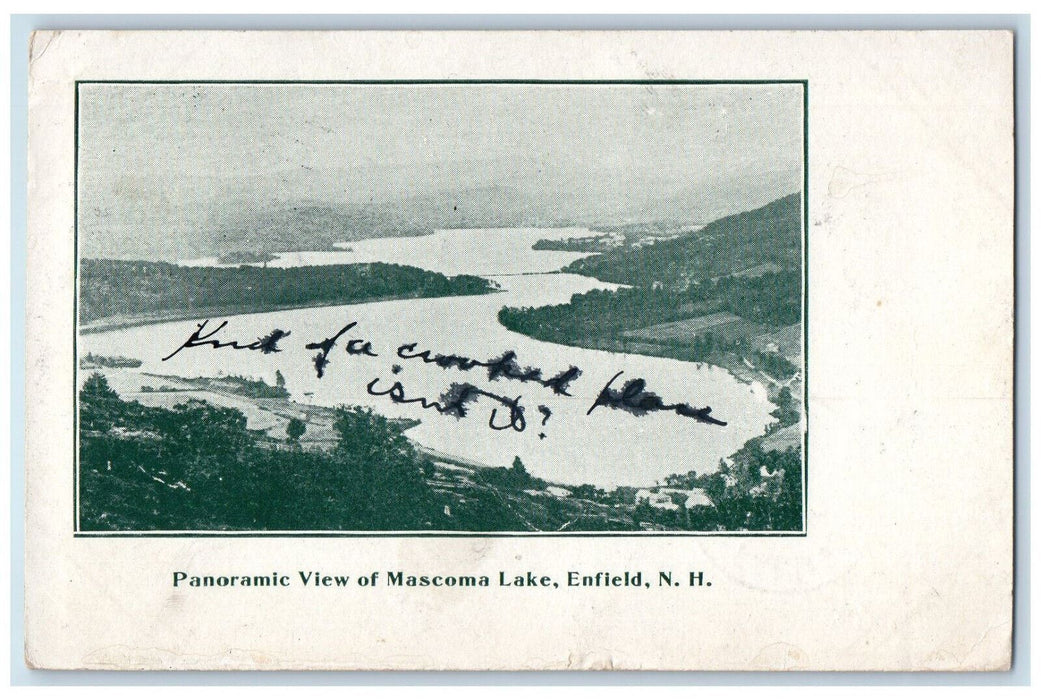 Kind of a crooked place
isnt it?
Panoramic View of Mascoma Lake, Enfield, N. H.